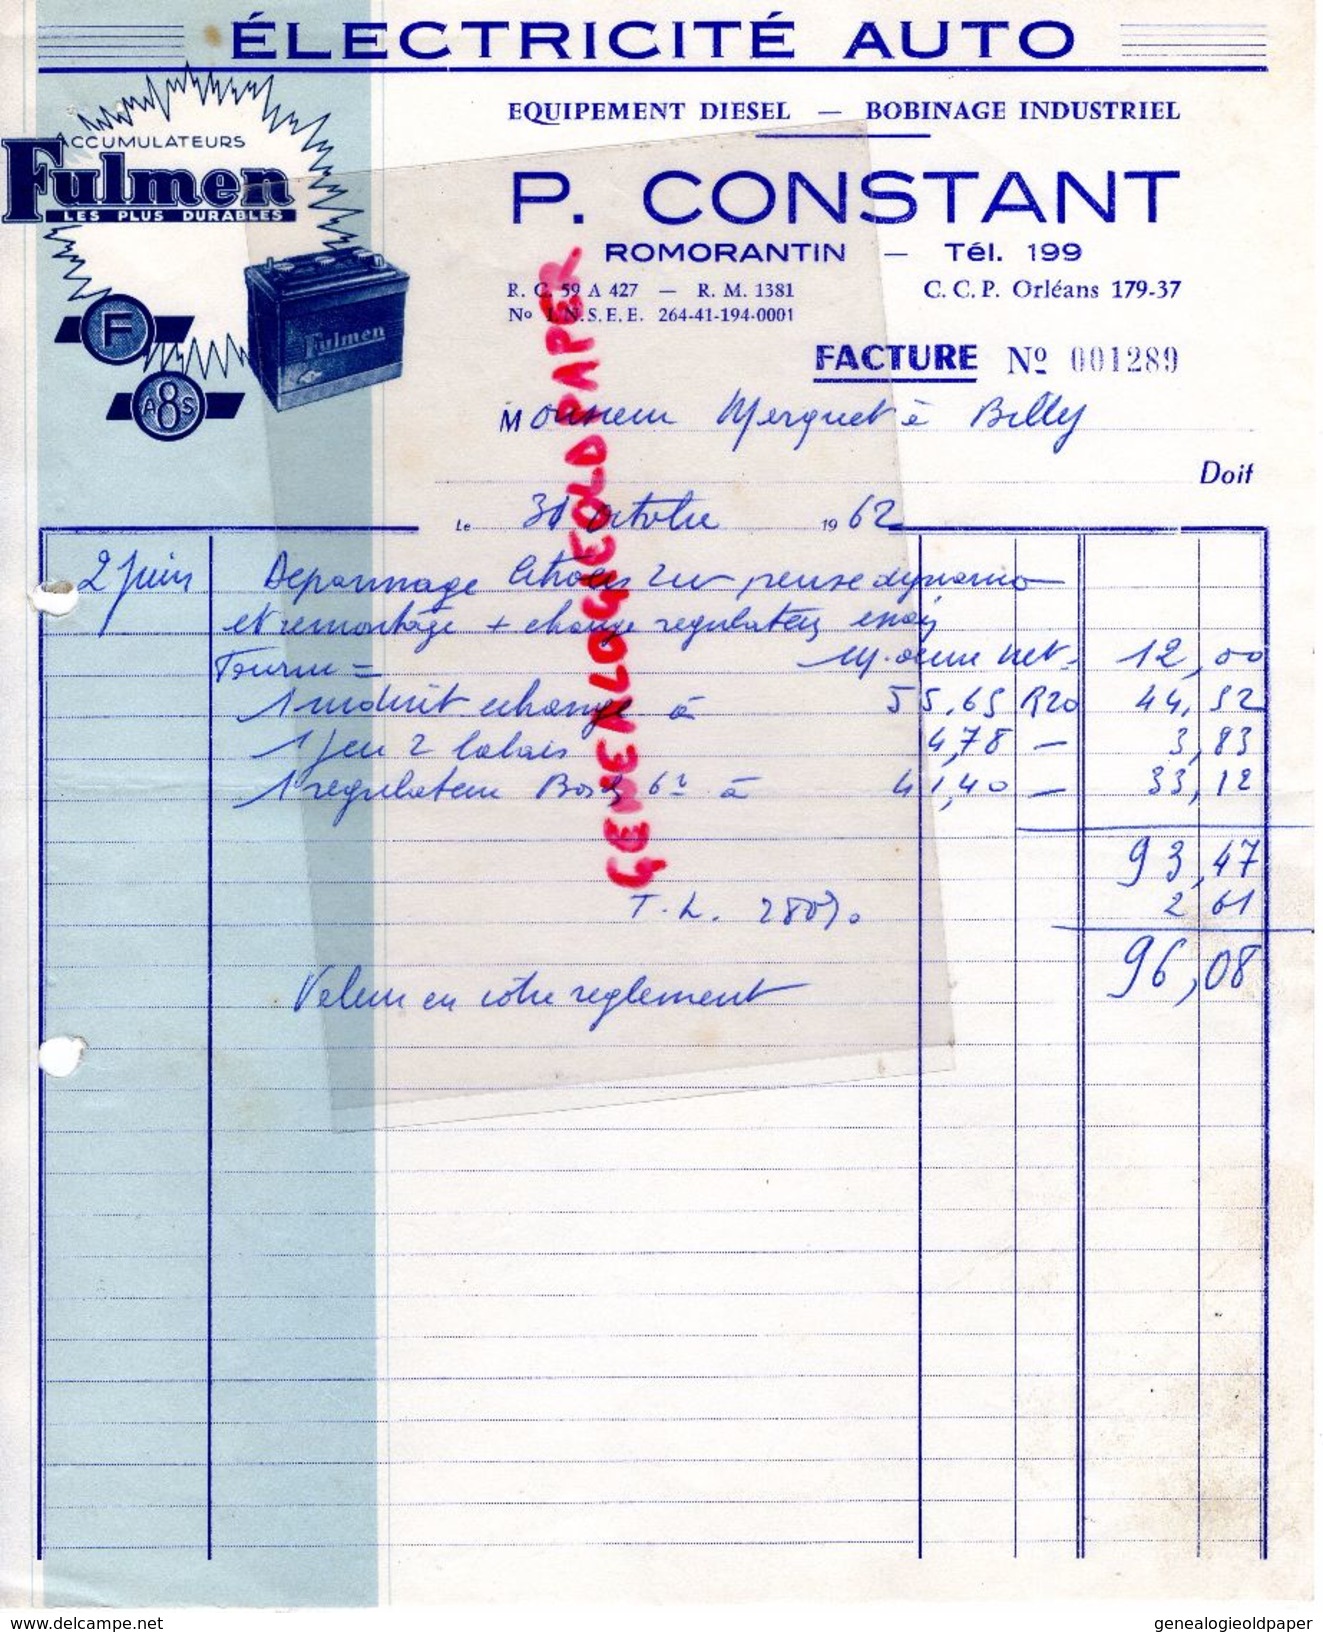 ÉLECTRICITÉ AUTO
EQUIPEMENT DIESEL — BOBINAGE INDUSTRIEL
ACCUMULATEURS
Fulmen
LES PLUS DURABLES
P. CONSTANT
ROMORANTIN — Tél. 199
R. C. 59 A 427 — R. M. 1381
C. C. P. Orléans 179-37
No I.N.S.E.E. 264-41-194-0001
Fulmen
F
A8S
FACTURE Nº 001289
Monsieur Merquet à Billy
Doit
Le 31 octobre 1962
2 Juin Depannage Citroën 2cv panne dynamo
et remontage + change regulateur essai
Fourni = M. oeuvre net 12,00
1 induit echange à 55,65 R20 44,52
1 jeu 2 balais 4,78 — 3,83
1 regulateur 6v à 41,40 — 33,12
93,47
T. L. 280% 2 61
96,08
Valeur en votre reglement
GENEALOGIEOLDPAPER
www.delcampe.net
genealogieoldpaper